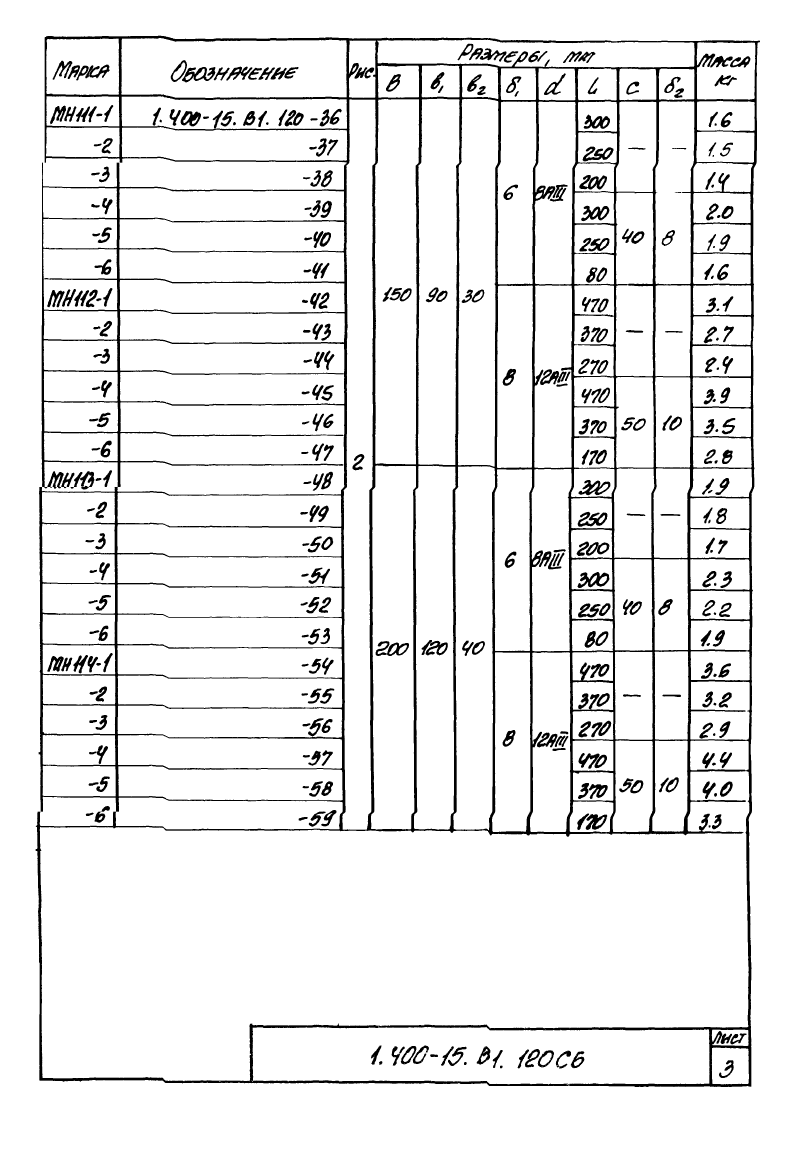 Марка Обозначение Рис. Размеры, мм Масса кг
В в₁ в₂ δ₁ d L с δ₂
МН111-1 1.400-15.В1.120-36 300 1.6
-2 -37 250 — — 1.5
-3 -38 200 1.4
6 8АIII
-4 -39 300 2.0
-5 -40 250 40 8 1.9
-6 -41 80 1.6
МН112-1 -42 150 90 30 470 3.1
-2 -43 370 — — 2.7
-3 -44 270 2.4
8 12АIII
-4 -45 470 3.9
-5 -46 370 50 10 3.5
-6 -47 170 2.8
2
МН113-1 -48 300 1.9
-2 -49 250 — — 1.8
-3 -50 200 1.7
6 8АIII
-4 -51 300 2.3
-5 -52 250 40 8 2.2
-6 -53 80 1.9
200 120 40
МН114-1 -54 470 3.6
-2 -55 370 — — 3.2
-3 -56 270 2.9
8 12АIII
-4 -57 470 4.4
-5 -58 370 50 10 4.0
-6 -59 170 3.3
1.400-15.В1.120СБ
Лист
3